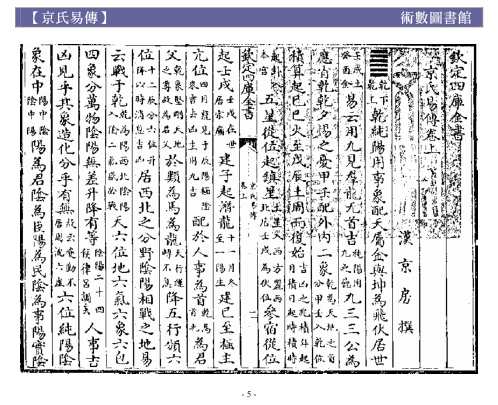 【京氏易傳】
術數圖書館
欽定四庫全書
京氏易傳卷上
漢 京房 撰
乾下乾上 乾純陽用事象配天屬金與坤為飛伏居世
壬戌土癸酉金 易云用九見羣龍无首吉 純陽用九之德 九三三公為
應肖乾乾夕惕之憂甲壬配外內二象 乾為天地之首分甲壬入乾位
積算起巳巳火至戊辰土周而復始 吉凶之兆積年起月積日起時積時
起卦入本宮 五星從位起鎮星 土星入西方 參宿從位
起壬戌 壬戌在世 建子起潛龍 十一月冬至一陽生 建巳至極主
欽定四庫全書
京氏易傳
卷上
二
亢位 配於人事為首 為君
父 於類為馬為龍 天行運轉不息 降五行頒六
位 十二辰分六位升降 居西北之分野陰陽相戰之地易
云戰于乾 乾為陽西北陰陽入陰二象交戰 天六位地六氣六象六包
四象分萬物陰陽無差升降有等 候律呂調矣 人事吉
凶見乎其象造化分乎有無 六位純陽陰
象在中 陽為君陰為臣陽為民陰為事陽實陰
- 5 -